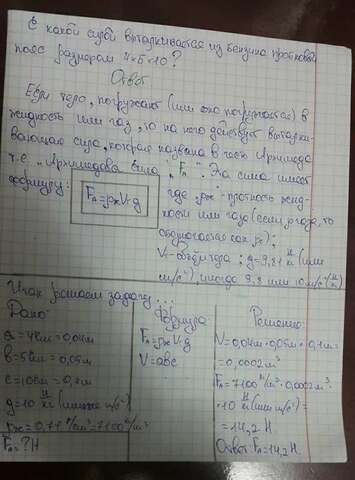 С какой силой выталкивается из бензина пробковый
пояс размером 4×5×10?
Ответ
Если тело, погружают (или оно погружается) в
жидкость или газ, то на него действует выталки-
вающая сила, которая названа в честь Архимеда
т.е. "Архимедова сила", "Fа". Эта сила имеет
формулу:
Fа=ρжV·g
где ρж - плотность жид-
кости или газа (если газа, то
обозначается как ρг);
V - объём тела; g=9,81 Н/кг (или
м/с²), иногда 9,8 или 10 м/с² (Н/кг)
Итак решаем задачу...
Дано
a=4см=0,04м
b=5см=0,05м
c=10см=0,1м
g=10 Н/кг (или же м/с²)
ρж=0,71 г/см³=7100 кг/м³
Fа=?Н
Формула
Fа=ρжV·g
V=abc
Решение
V=0,04м·0,05м·0,1м=
=0,0002м³
Fа=7100 кг/м³·0,0002м³·
·10 Н/кг (или м/с²)=
=14,2 Н.
Ответ: Fа=14,2 Н.